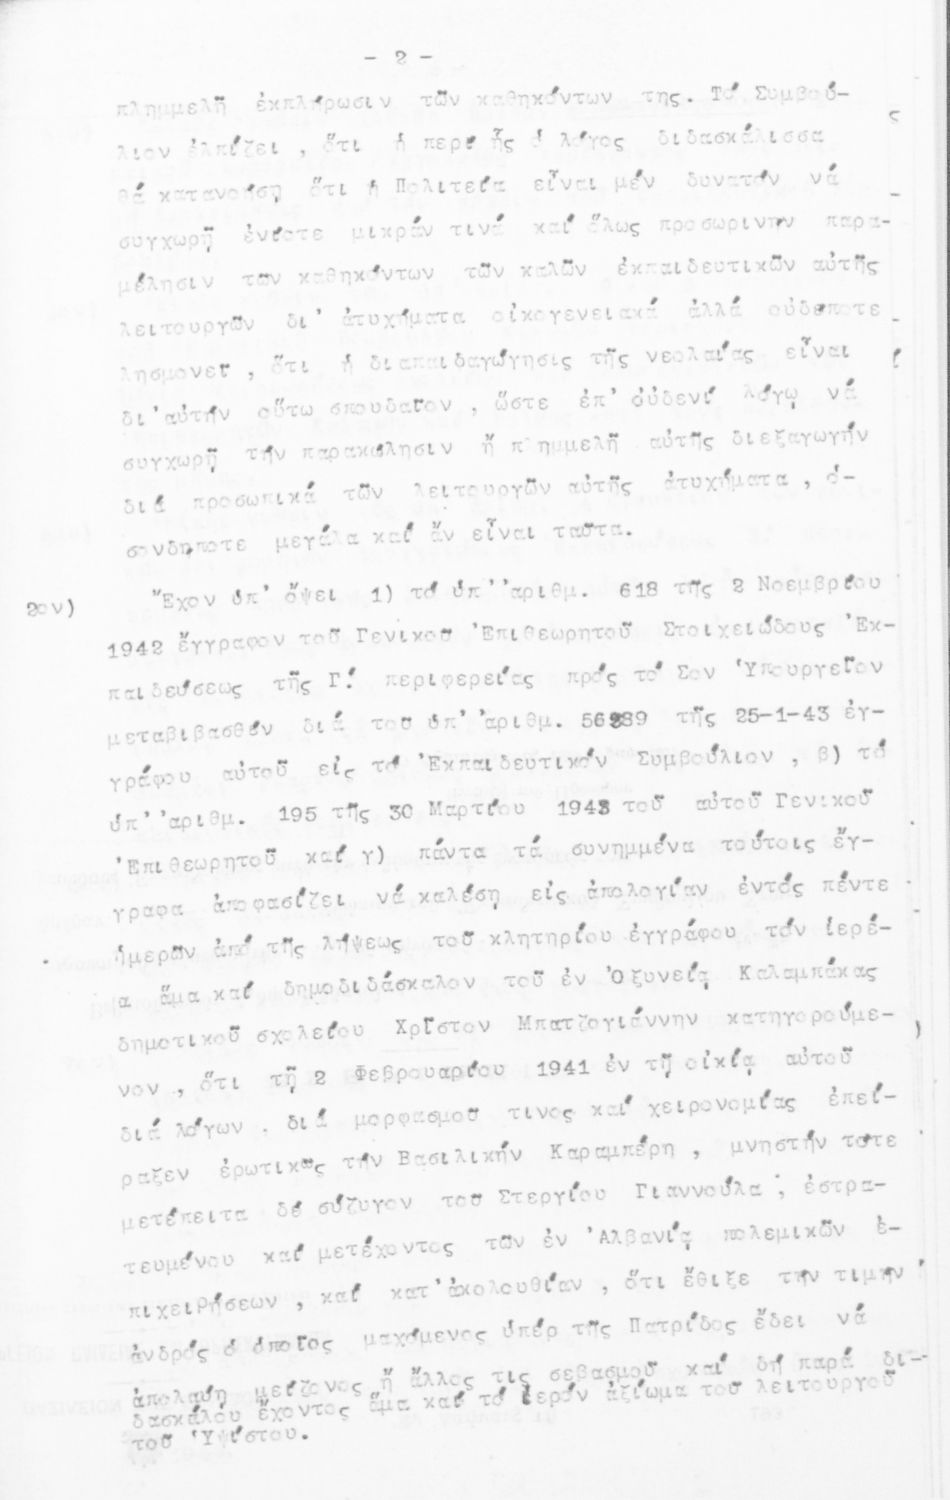 - 2 -
πλημμελῆ ἐκπλήρωσιν τῶν καθηκόντων της. Τό Συμβού-
λιον ἐλπίζει , ὅτι ἡ περί ἧς ὁ λόγος διδασκάλισσα
θά κατανοήσῃ ὅτι ἡ Πολιτεία εἶναι μέν δυνατόν νά
συγχωρῇ ἐνίοτε μικράν τινά καί ὅλως προσωρινήν παρα-
μέλησιν τῶν καθηκόντων τῶν καλῶν ἐκπαιδευτικῶν αὐτῆς
λειτουργῶν δι' ἀτυχήματα οἰκογενειακά ἀλλά οὐδέποτε
λησμονεῖ , ὅτι ἡ διαπαιδαγώγησις τῆς νεολαίας εἶναι
δι'αὐτήν οὕτω σπουδαῖον , ὥστε ἐπ' οὐδενί λόγῳ νά
συγχωρῇ τήν παρακώλησιν ἤ πλημμελῆ αὐτῆς διεξαγωγήν
διά προσωπικά τῶν λειτουργῶν αὐτῆς ἀτυχήματα , ὁ-
σονδήποτε μεγάλα καί ἄν εἶναι ταῦτα.
2ον) Ἔχον ὑπ' ὄψει 1) τό ὑπ''ἀριθμ. 618 τῆς 2 Νοεμβρίου
1942 ἔγγραφον τοῦ Γενικοῦ Ἐπιθεωρητοῦ Στοιχειώδους Ἐκ-
παιδεύσεως τῆς Γ΄. περιφερείας πρός τό Σον Ὑπουργεῖον
μεταβιβασθέν διά τοῦ ὑπ''ἀριθμ. 56289 τῆς 25-1-43 ἐγ-
γράφου αὐτοῦ εἰς τό Ἐκπαιδευτικόν Συμβούλιον , β) τό
ὑπ''ἀριθμ. 195 τῆς 30 Μαρτίου 1943 τοῦ αὐτοῦ Γενικοῦ
Ἐπιθεωρητοῦ καί γ) πάντα τά συνημμένα τούτοις ἔγ-
γραφα ἀποφασίζει νά καλέσῃ εἰς ἀπολογίαν ἐντός πέντε
ἡμερῶν ἀπό τῆς λήψεως τοῦ κλητηρίου ἐγγράφου τόν ἱερέ-
α ἅμα καί δημοδιδάσκαλον τοῦ ἐν Ὀξυνείᾳ Καλαμπάκας
δημοτικοῦ σχολείου Χρῖστον Μπατζογιάννην κατηγορούμε-
νον , ὅτι τῇ 2 Φεβρουαρίου 1941 ἐν τῇ οἰκίᾳ αὐτοῦ
διά λόγων . διά μορφασμοῦ τινος καί χειρονομίας ἐπεί-
ραξεν ἐρωτικῶς τήν Βασιλικήν Καραμπέρη , μνηστήν τότε
μετέπειτα δέ σύζυγον τοῦ Στεργίου Γιαννούλα , ἐστρα-
τευμένου καί μετέχοντος τῶν ἐν Ἀλβανίᾳ πολεμικῶν ἐ-
πιχειρήσεων , καί κατ'ἀκολουθίαν , ὅτι ἔθιξε τήν τιμήν
ἀνδρός ὁ ὁποῖος μαχόμενος ὑπέρ τῆς Πατρίδος ἔδει νά
ἀπολαύῃ μείζονος ἤ ἄλλος τις σεβασμοῦ καί δή παρά δι-
δασκάλου ἔχοντος ἅμα καί τό ἱερόν ἀξίωμα τοῦ λειτουργοῦ
τοῦ Ὑψίστου.